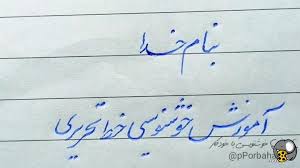 بنام خدا
آموزش خوشنویسی خط تحریری
خوشنویسی با خودکار
@pPorbaha